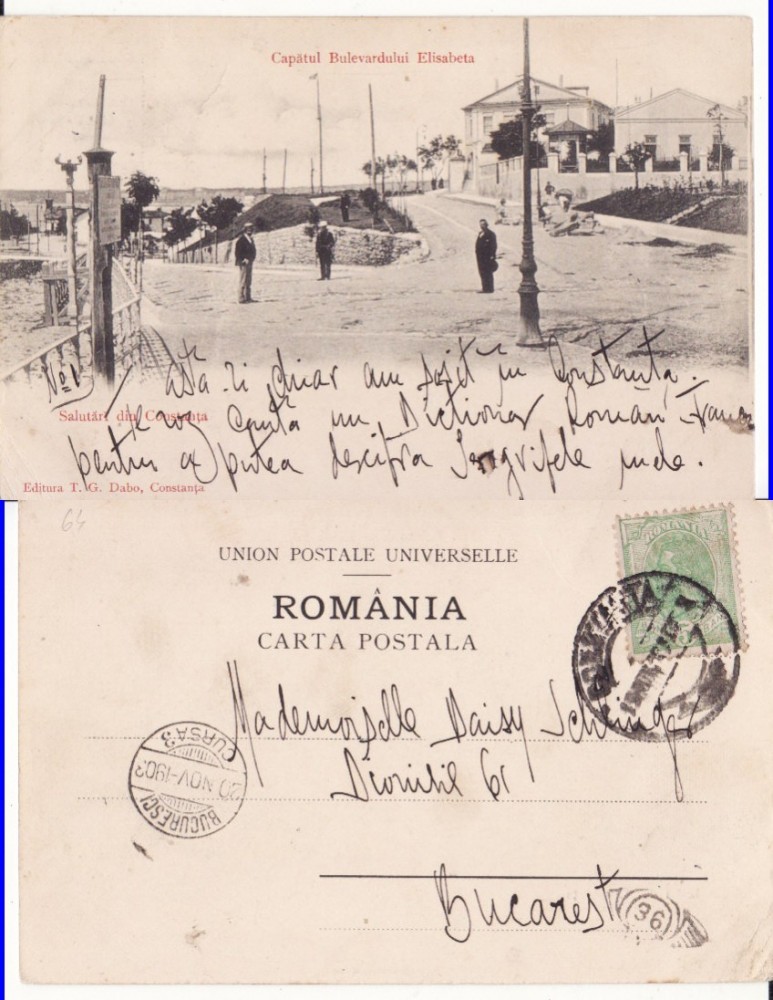 Capătul Bulevardului Elisabeta
No 1
astă-zi chiar am sosit în Constanța.
Salutări din Constanța
te rog caută un Dictionar Român-
pentru a putea descifra
Editura T. G. Dabo, Constanța
64
UNION POSTALE UNIVERSELLE
ROMÂNIA
CARTA POSTALA
ROMANIA
Mademoiselle Daisy
61
Bucarest
CURSA 3
20 NOV 190
BUCURESCI
36